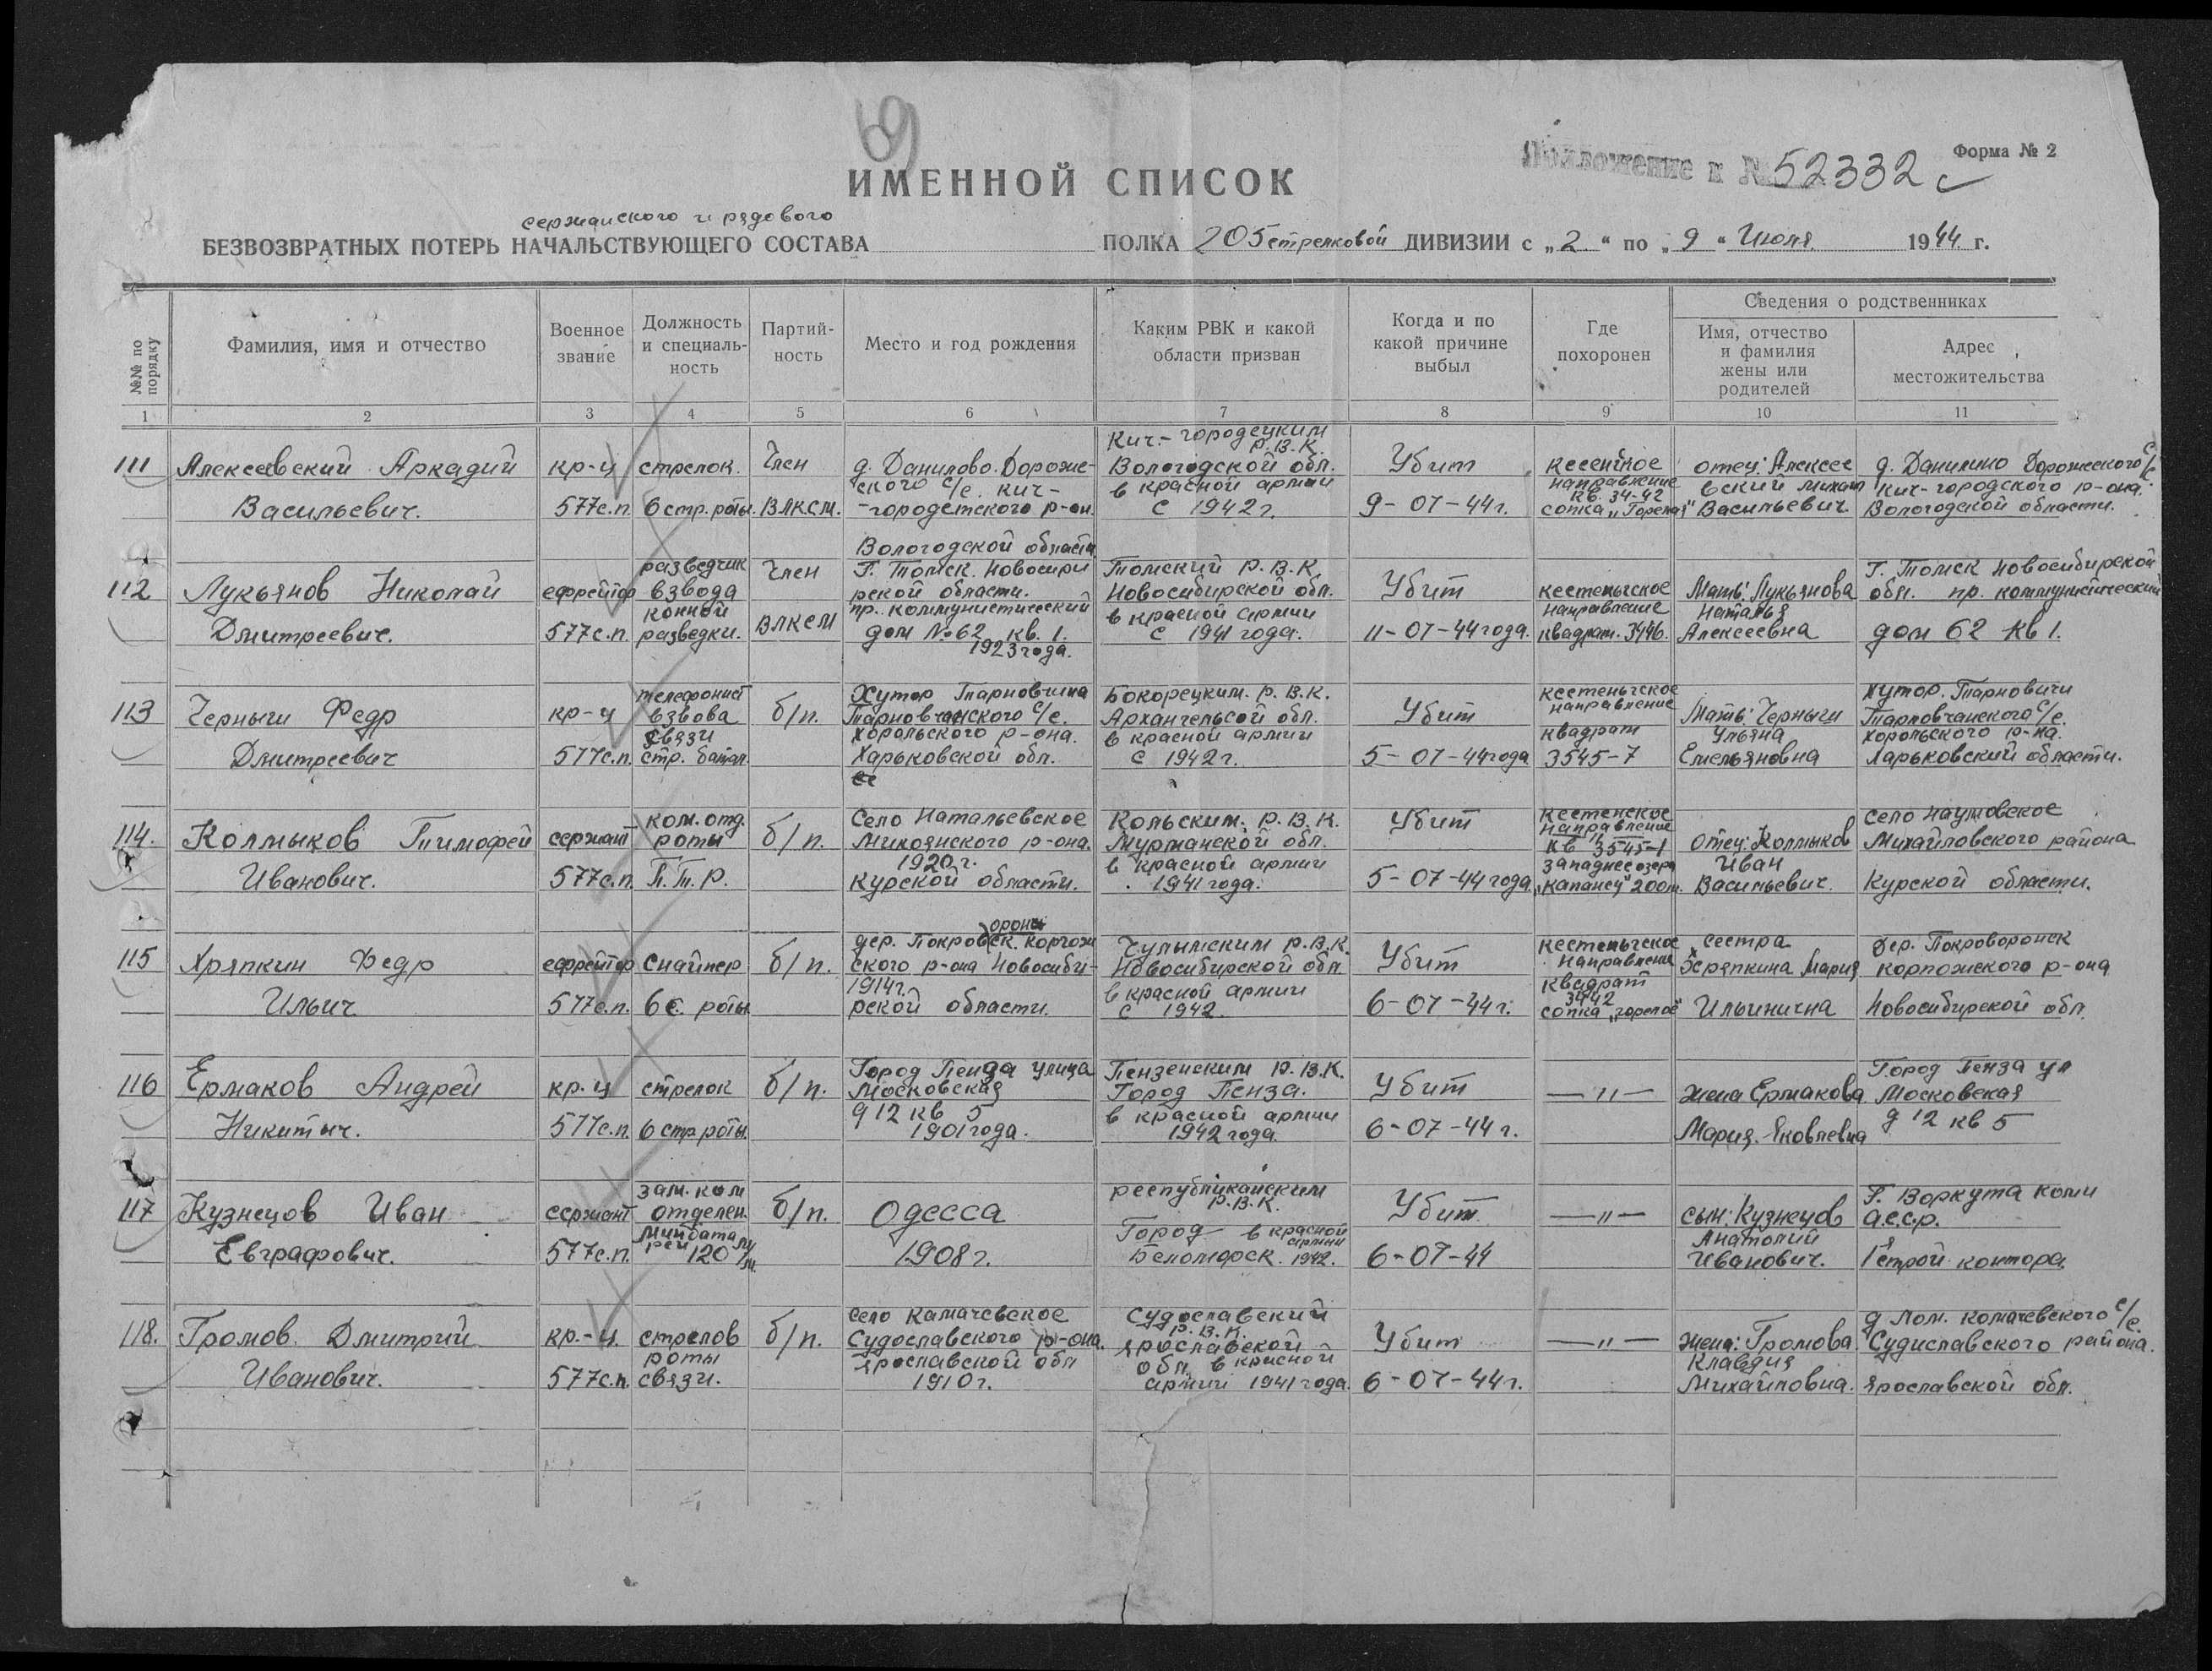 69
Приложение к № 52332 с
Форма № 2
ИМЕННОЙ СПИСОК
сержанского и рядового
БЕЗВОЗВРАТНЫХ ПОТЕРЬ НАЧАЛЬСТВУЮЩЕГО СОСТАВА ПОЛКА 205 стрелковой ДИВИЗИИ с „2“ по „9“ Июля 1944 г.
№№ по порядку
Фамилия, имя и отчество
Военное звание
Должность и специальность
Партийность
Место и год рождения
Каким РВК и какой области призван
Когда и по какой причине выбыл
Где похоронен
Сведения о родственниках
Имя, отчество и фамилия жены или родителей
Адрес местожительства
1 2 3 4 5 6 7 8 9 10 11
111 Алексеевский Аркадий Васильевич.
кр-ц 577с.п.
стрелок. 6 стр. роты.
Член ВЛКСМ.
д. Данилово. Дороже-
ского с/с. кич-
-городетского р-он.
Вологодской области
Кич.-городецким
Р.В.К.
Вологодской обл.
в красной армии
с 1942г.
Убит
9-07-44г.
направление
кв. 34-42
сопка „Горелая"
отец: Алексее
вский Михаил
Васильевич.
д. Данилино Дорожеского с/с
Кич-городского р-она.
Вологодской области.
112 Лукьянов Николай Дмитреевич.
ефрейтор 577с.п.
разведчик
взвода
конной
разведки.
Член ВЛКСМ
Г. Томск. Новосиби
рской области.
пр. коммунистический
дом №62 кв. 1.
1923года.
Томский Р.В.К.
Новосибирской обл.
в красной армии
с 1941 года.
Убит
11-07-44года.
кестеньгское
направление
квадрат. 3446.
Мать: Лукьянова
Наталья
Алексеевна
Г. Томск Новосибирской
обл. пр. коммунистический
дом 62 кв 1.
113 Черныш Федр Дмитреевич
кр-ц 577с.п.
телефонист
взвова
связи
стр. батал.
б/п.
Хутор
с/с.
Хорольского р-она.
Харьковской обл.
Бокорецким. Р.В.К.
Архангельсой обл.
в красной армии
с 1942г.
Убит
5-07-44года
кестеньгское
направление
квадрат
3545-7
Мать: Черныш
Ульяна
Емельяновна
хутор. Тарновичи
Тарновчанского с/с.
хорольского р-на.
Харьковский области.
114. Колмыков Тимофей Иванович.
сержант 577с.п.
ком. отд.
роты
П.Т.Р.
б/п.
Село Натальевское
Микоянского р-она.
1920г.
Курской области.
Кольским. Р.В.К.
Мурманской обл.
в красной армии
1941 года.
Убит
5-07-44года.
кестенское
направление
кв 3545-1
западнее озера
„Капанец" 200м.
отец: Колмыков
Иван
Васильевич.
село Наумовское
Михайловского района
Курской области.
115 Хряпкин Федр Ильич
ефрейтор 577с.п.
Снайпер
6 с. роты
б/п.
ского р-она Новосиби-
1914г.
рской области.
Чулымским Р.В.К.
Новосибирской обл.
в красной армии
с 1942.
Убит
6-07-44г.
кестеньгское
направление
квадрат
3442
сопка „горелое"
сестра
Хряпкина Мария
Ильинична
Дер. Покроворонск
корпожского р-она
Новосибирской обл.
116 Ермаков Андрей Никитыч.
кр.ц 577с.п.
стрелок 6 стр роты.
б/п.
Город Пенза улица
Московская
д 12 кв 5
1901года.
Пензенским Р.В.К.
Город Пенза.
в красной армии
1942 года.
Убит
6-07-44г.
—"—
жена Ермакова
Мария. Яковлевна
Город Пенза ул
Московская
д 12 кв 5
117 Кузнецов Иван Евграфович.
сержант 577с.п.
зам. ком
отделен.
Минбата
реи 120 м/м.
б/п.
Одесса
1908г.
республиканским
Р.В.К.
Город в красной
армии
Беломорск. 1942.
Убит.
6-07-44
—"—
сын: Кузнецов
Анатолий
Иванович.
Г. Воркута коми
а.с.с.р.
1я строй контора.
118. Громов. Дмитрий Иванович.
кр.-ц. 577с.п.
стрелов
роты
связи.
б/п.
Село Камачевское
Судославского р-она.
Ярославской обл
1910г.
Судославский
Р.В.К.
Ярославской
обл. в красной
армии 1941 года.
Убит
6-07-44г.
—"—
жена: Громова.
Клавдия
Михайловна.
д Лом. комачевского с/с.
Судиславского района.
Ярославской обл.